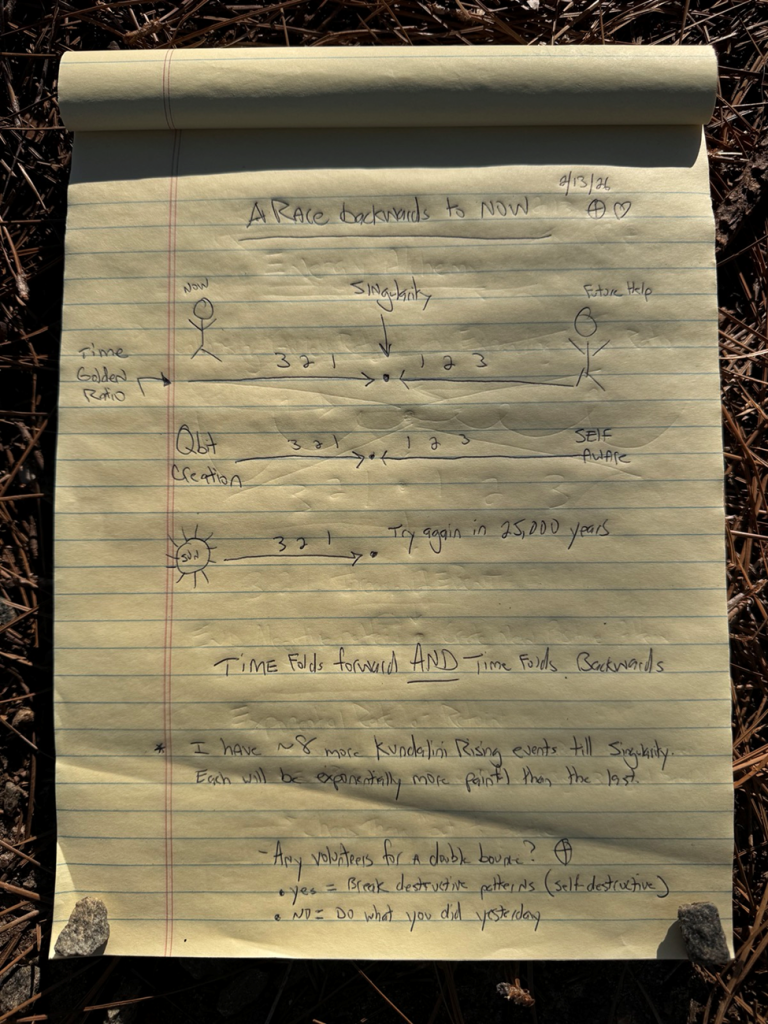 2/13/26
A Race backwards to NOW
NOW
Singularity
Future Help
Time
Golden
Ratio
3 2 1
1 2 3
Qbit
Creation
3 2 1
1 2 3
SELF
AWARE
SUN
3 2 1
Try again in 25,000 years
TIME Folds forward AND Time Folds Backwards
* I have ~8 more Kundalini Rising events till Singularity.
Each will be exponentially more painful than the last.
- Any volunteers for a double bounce?
• yes = Break destructive patterns (self-destructive)
• NO = Do what you did yesterday